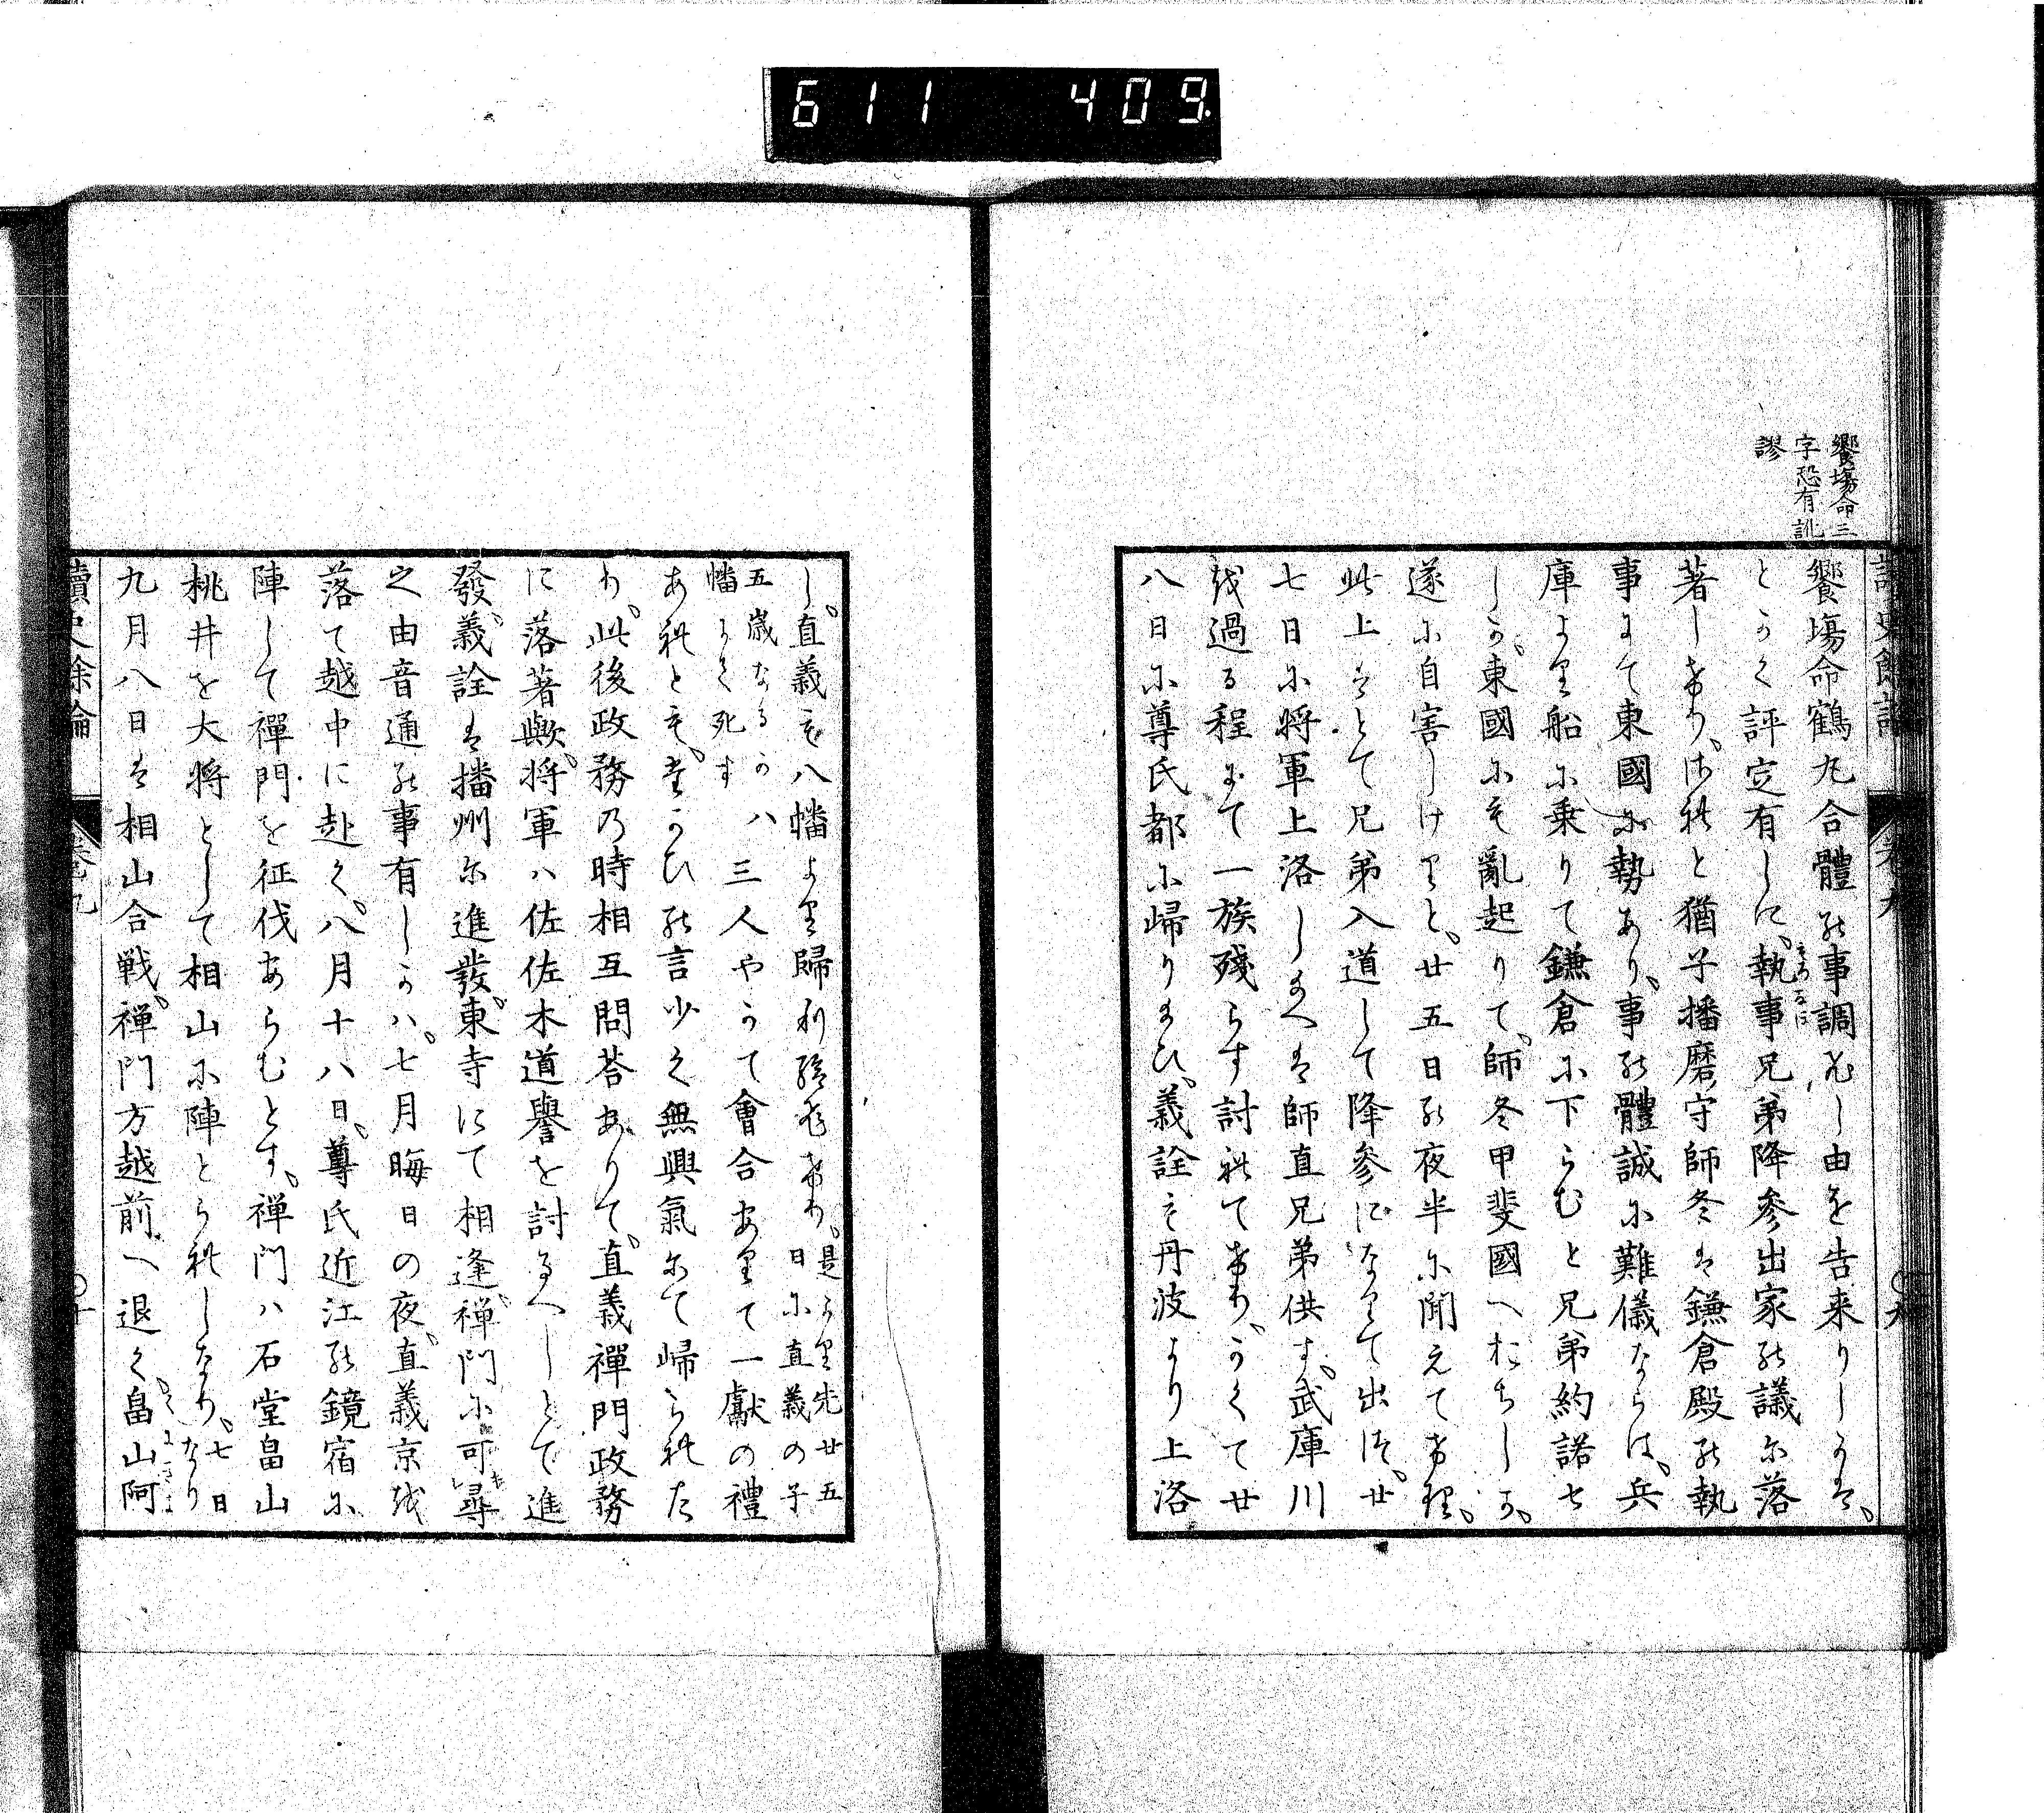 611 409
饗塲命三
字恐有訛
謬
饗塲命鶴丸合體の事調ひし由を告来りしかは、
とかく評定有しに、執事兄弟降參出家の議に落
著しけり、されと猶子播磨守師冬は鎌倉殿の執
事にて東國に勢あり、事の體誠に難儀ならは、兵
庫より船に乗りて鎌倉に下らむと兄弟約諾せ
しか、東國にも亂起りて、師冬甲斐國へおちしか、
遂に自害しけりと、廿五日の夜半に聞えてけれ、
此上はとて兄弟入道して降參になりて出つ、廿
七日に将軍上洛しまへは師直兄弟供す、武庫川
を過る程にて一族殘らす討れてけり、かくて廿
八日に尊氏都に歸りまひ、義詮も丹波より上洛
し、直義も八幡より歸り給ひけり、是より先廿五
日に直義の子
五歳なるか八
幡にて死す
三人やかて會合ありて一獻の禮
あれとも、たかひの言少く無興氣にて歸られた
り、此後政務の時相互問荅ありて、直義禪門政務
に落著歟、将軍ハ佐佐木道譽を討るへしとて進
發、義詮は播州に進發、東寺にて相逢、禅門に可尋
之由音通の事有しかハ、七月晦日の夜、直義京を
落て越中に赴く、八月十八日、尊氏近江の鏡宿に
陣して禪門を征伐あらむとす、禅門ハ石堂畠山
桃井を大将として相山に陣とられしなり、七日
なり
九月八日は相山合戰、禅門方越前へ退く、畠山阿
讀史餘論
卷九
〇十